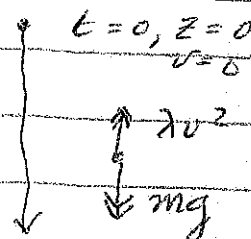 t=0, z=0
v=0
λv²
mg